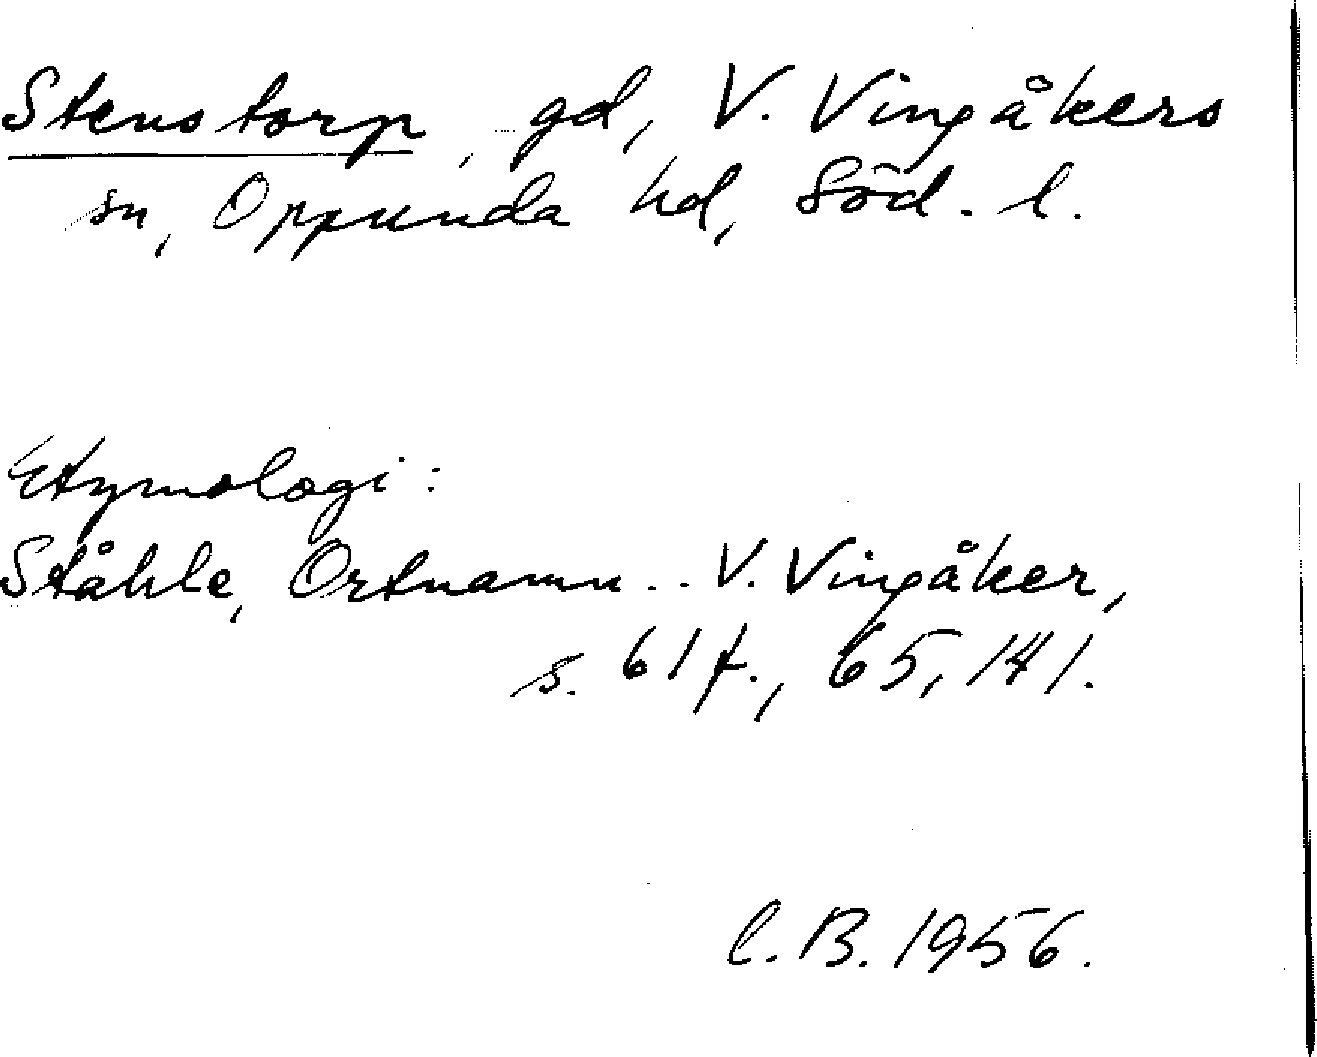 Stenstorp, gd, V. Vingåkers
sn, Oppunda hd, Söd. l.
Etymologi:
Ståhle, Ortnamn.. V. Vingåker,
s. 61f., 65, 141.
C.B. 1956.